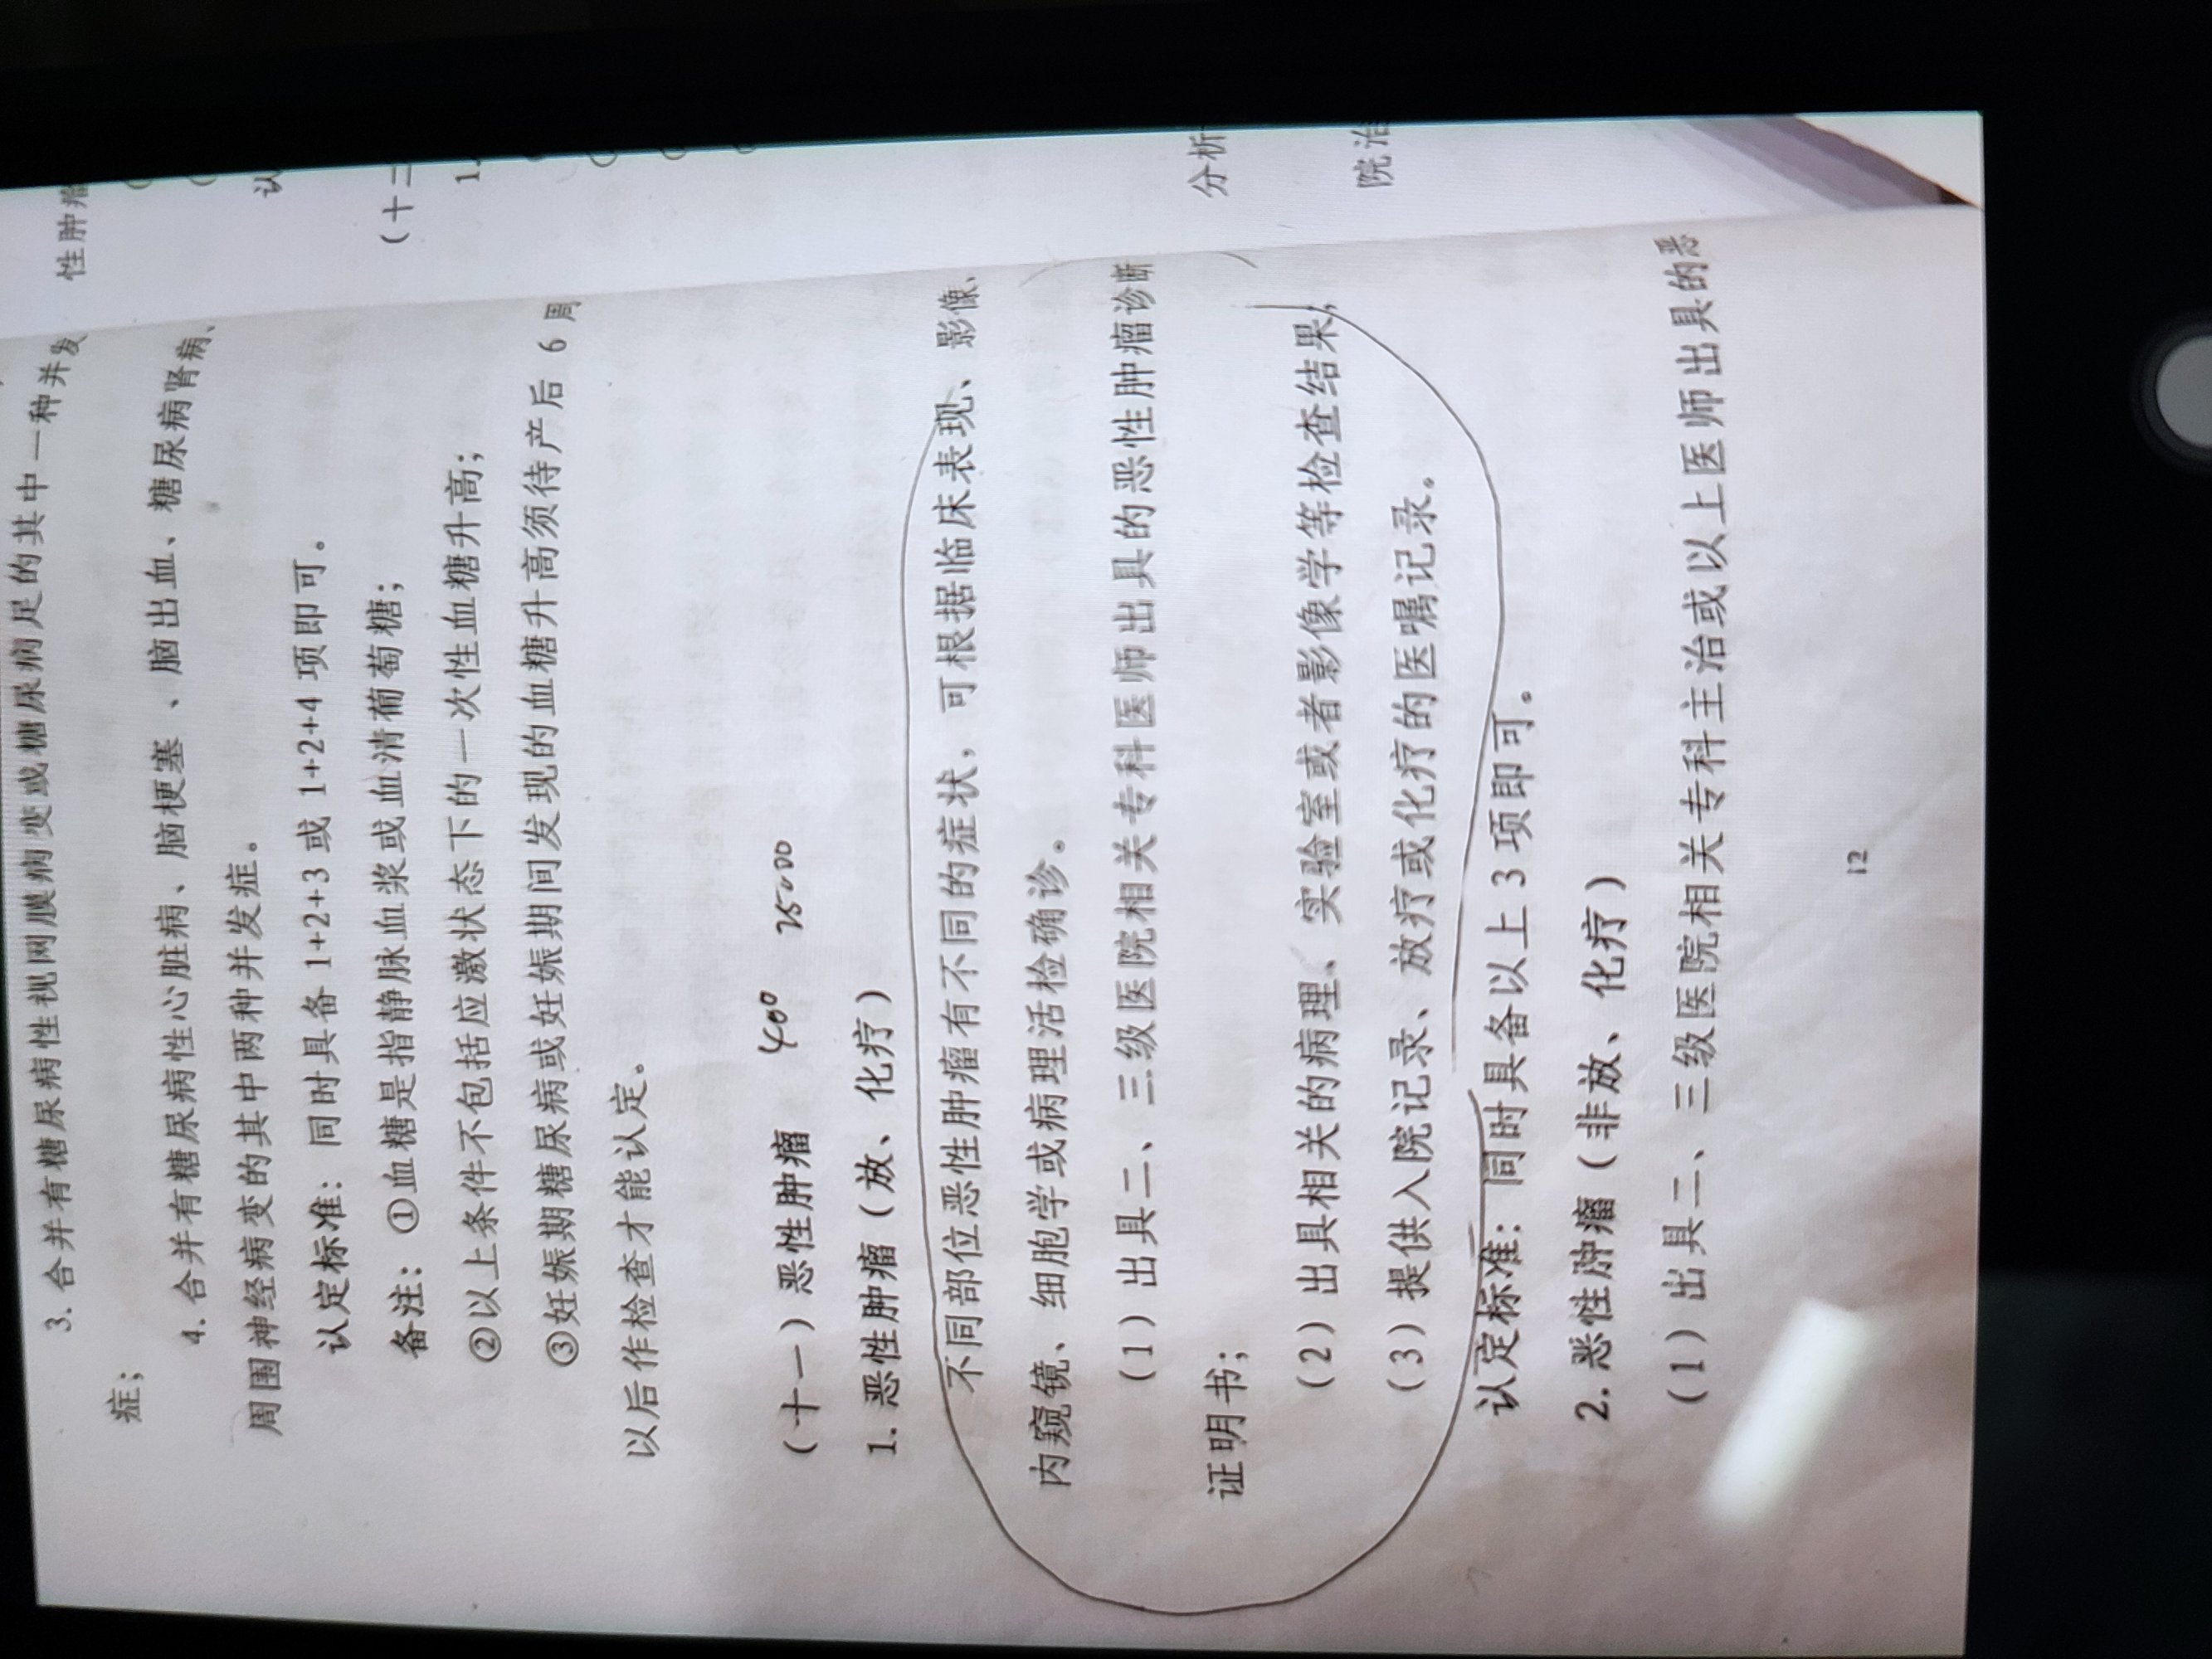 3. 合并有糖尿病性视网膜病变或糖尿病足的其中一种并发
症；
4. 合并有糖尿病性心脏病、脑梗塞、脑出血、糖尿病肾病、
周围神经病变的其中两种并发症。
认定标准：同时具备 1+2+3 或 1+2+4 项即可。
备注：①血糖是指静脉血浆或血清葡萄糖；
②以上条件不包括应激状态下的一次性血糖升高；
③妊娠期糖尿病或妊娠期间发现的血糖升高须待产后 6 周
以后作检查才能认定。
（十一）恶性肿瘤 400
1. 恶性肿瘤（放、化疗）
不同部位恶性肿瘤有不同的症状，可根据临床表现、影像、
内窥镜、细胞学或病理活检确诊。
（1）出具二、三级医院相关专科医师出具的恶性肿瘤诊断
证明书；
（2）出具相关的病理、实验室或者影像学等检查结果；
（3）提供入院记录、放疗或化疗的医嘱记录。
认定标准：同时具备以上 3 项即可。
2. 恶性肿瘤（非放、化疗）
（1）出具二、三级医院相关专科主治或以上医师出具的恶
12
性肿瘤
认
（十二
1.
分析
院治